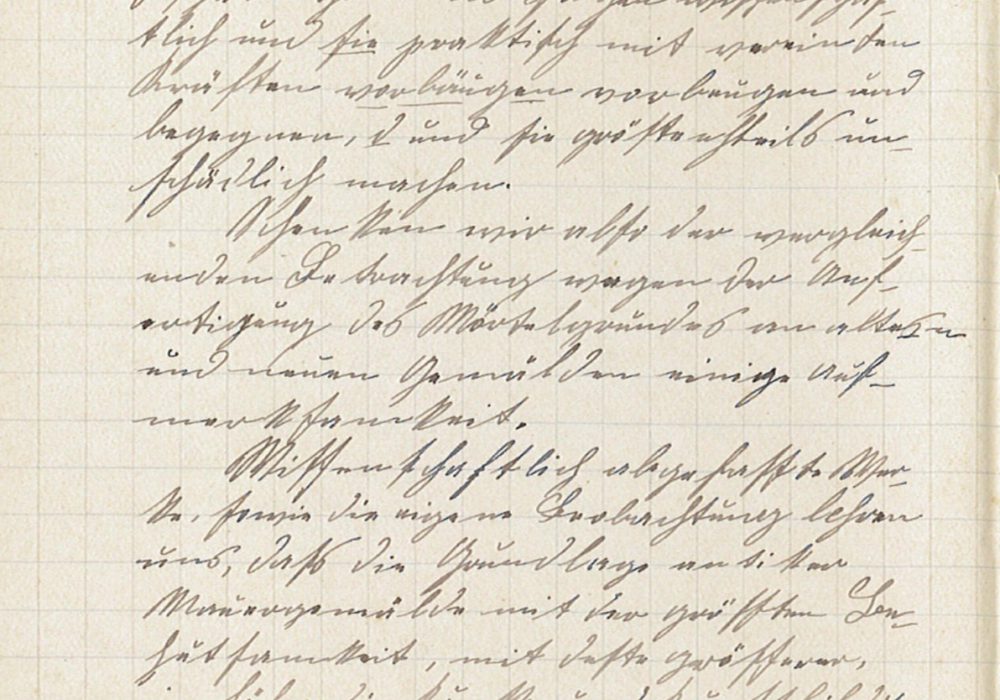 tlich und sie praktisch mit vereinten
Kräften vorbäugen vorbeugen und
begegnen, d und sie gröstenstheils un-
schädlich machen.
Schenken wir also der vergleich-
enden Betrachtung wegen der Anf-
ertigung des Mörtelgrundes an alten
und neuen Gemälden einige Auf-
merksamkeit.
Wissenschaftlich abgefasste Wer-
ke, sowie die eigene Beobachtung lehren
uns, daß die Grundlage antiker
Mauergemälde mit der größten Be-
hutsamkeit, mit desto größerer,